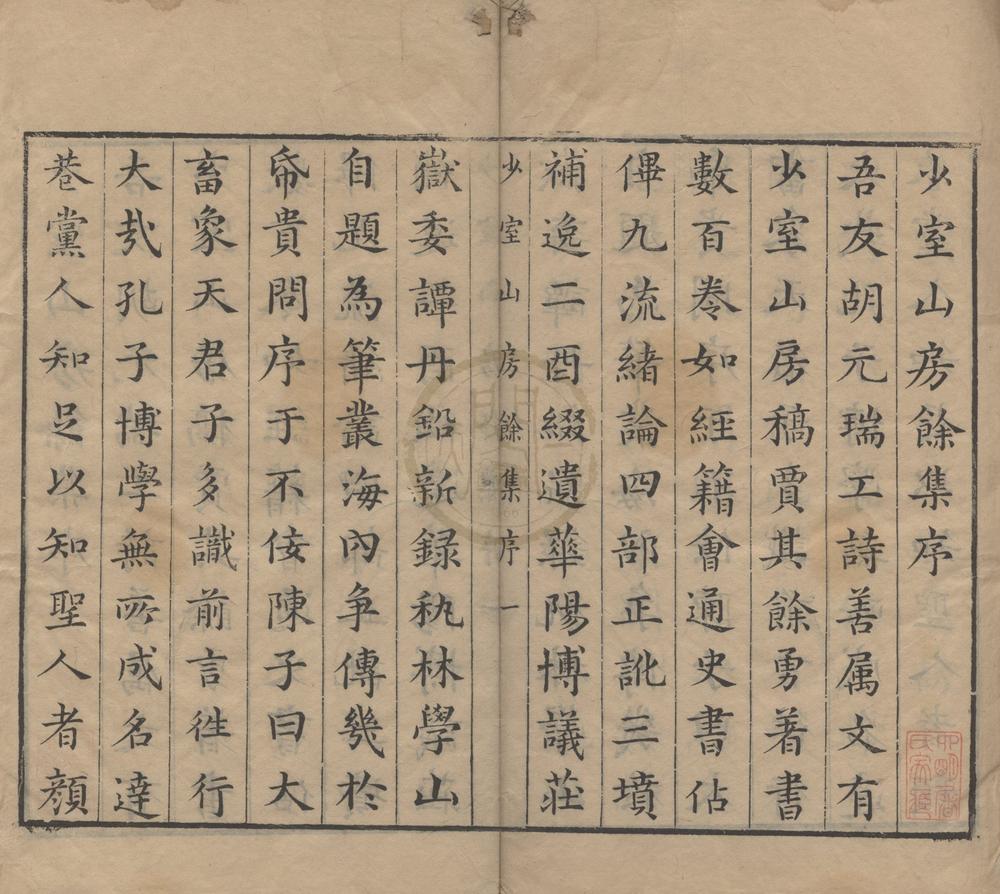 少室山房餘集序
吾友胡元瑞工詩善属文有
少室山房稿賈其餘勇著書
數百卷如經籍會通史書佔
㑻九流緒論四部正訛三墳
補逸二酉綴遺華陽博議莊
少室山房餘集序 一
嶽委譚丹鉛新錄秇林學山
自題為筆叢海內争傳幾於
帋貴問序于不佞陳子曰大
畜象天君子多識前言徃行
大㢤孔子博學無所成名達
巷黨人知足以知聖人者顏